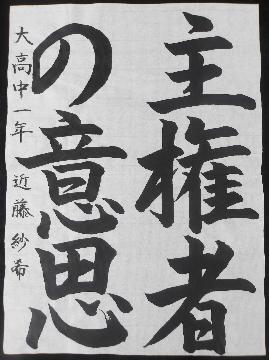 主権者
の意思
大高中一年 近藤紗希